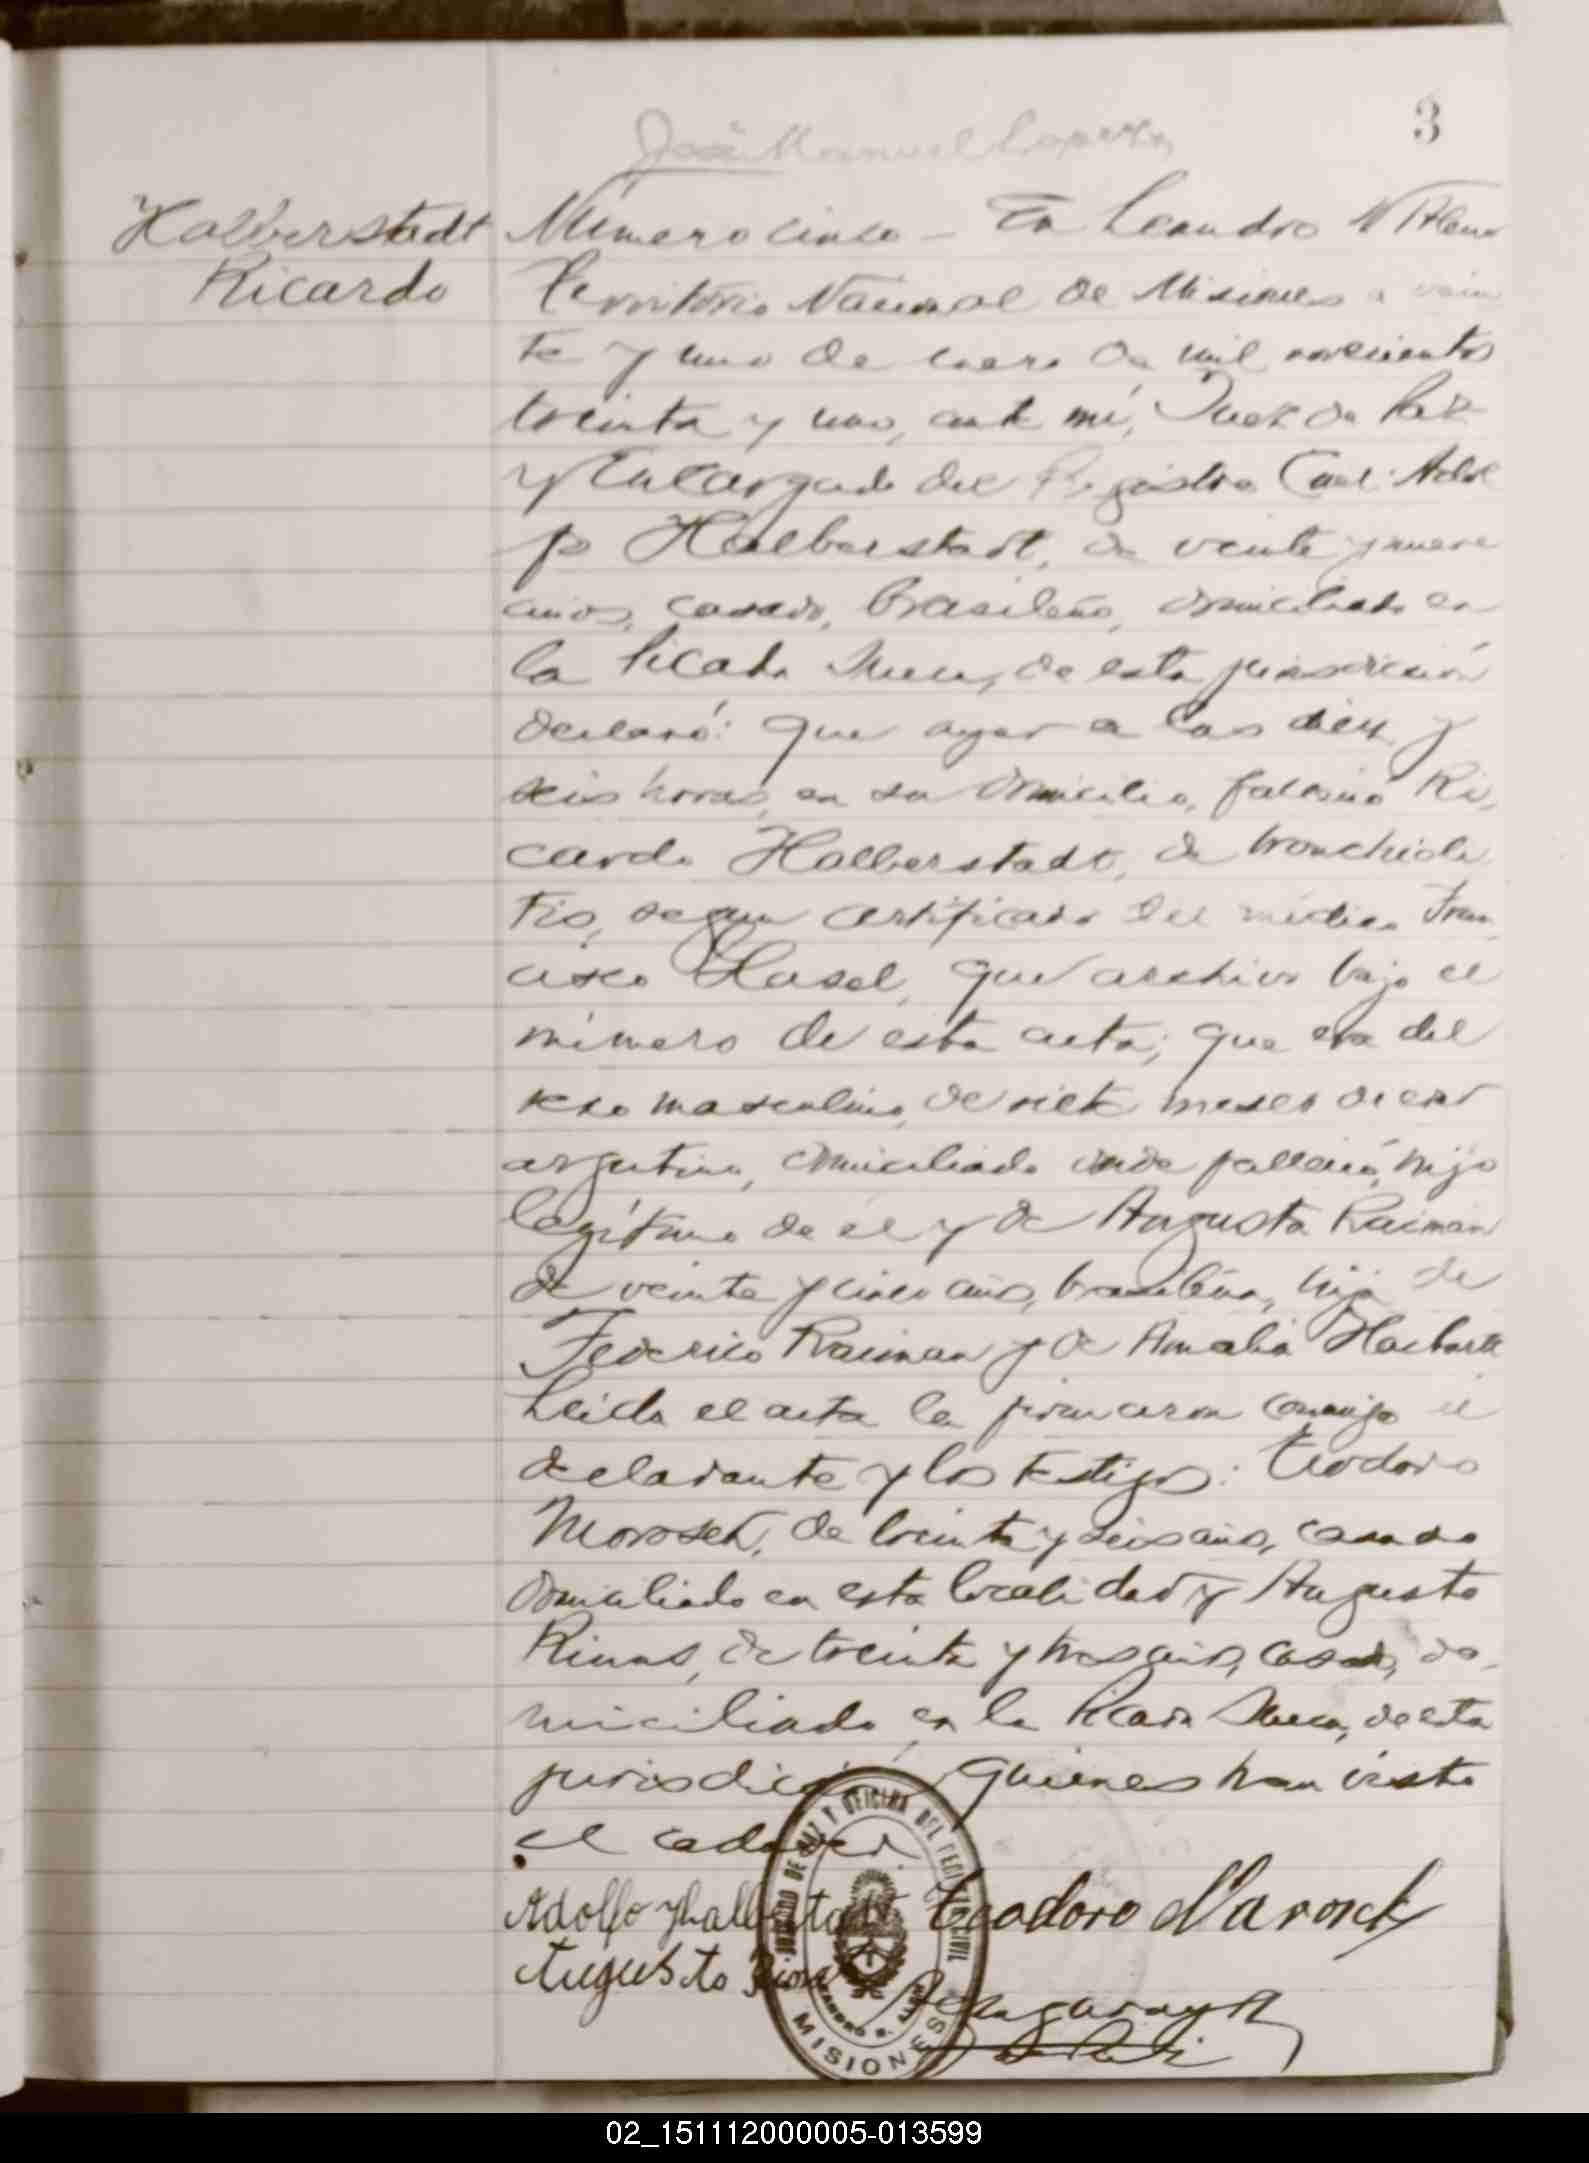 3
José Manuel
Halberstadt
Ricardo
Número cinco - En Leandro N Alem
Territorio Nacional de Misiones a vein
te y uno de enero de mil novecientos
treinta y uno, ante mí, Juez de Paz
y Encargado del Registro Civil: Adol
fo Halberstadt, de veinte y nueve
años, casado, brasileño, domiciliado en
la Picada Nueva, de esta jurisdicción
declaró: que ayer a las diez y
seis horas, en su domicilio, falleció Ri
cardo Halberstadt, de bronchioli
tis, segun certificado del médico Fran
cisco Hasel, que archivo bajo el
número de esta acta; que era del
sexo masculino, de siete meses de edad
argentino, domiciliado donde falleció, hijo
legítimo de el y de Augusta Raiman
de veinte y cinco años, brasileña, hija de
Federico Raiman y de Amalia
Leida el acta la firmaron conmigo el
declarante y los testigos: Teodoro
Morosek, de treinta y seis años, casado
domiciliado en esta localidad y Augusto
Rinas, de treinta y tres años, casado, do-
miciliado en la Picada Nueva, de esta
jurisdicción, quienes han visto
el cadaver.
Adolfo Halberstadt Teodoro Marosek
Augusto
JUZGADO DE PAZ Y OFICINA DEL REGISTRO CIVIL
LEANDRO N. ALEM
MISIONES
02_151112000005-013599